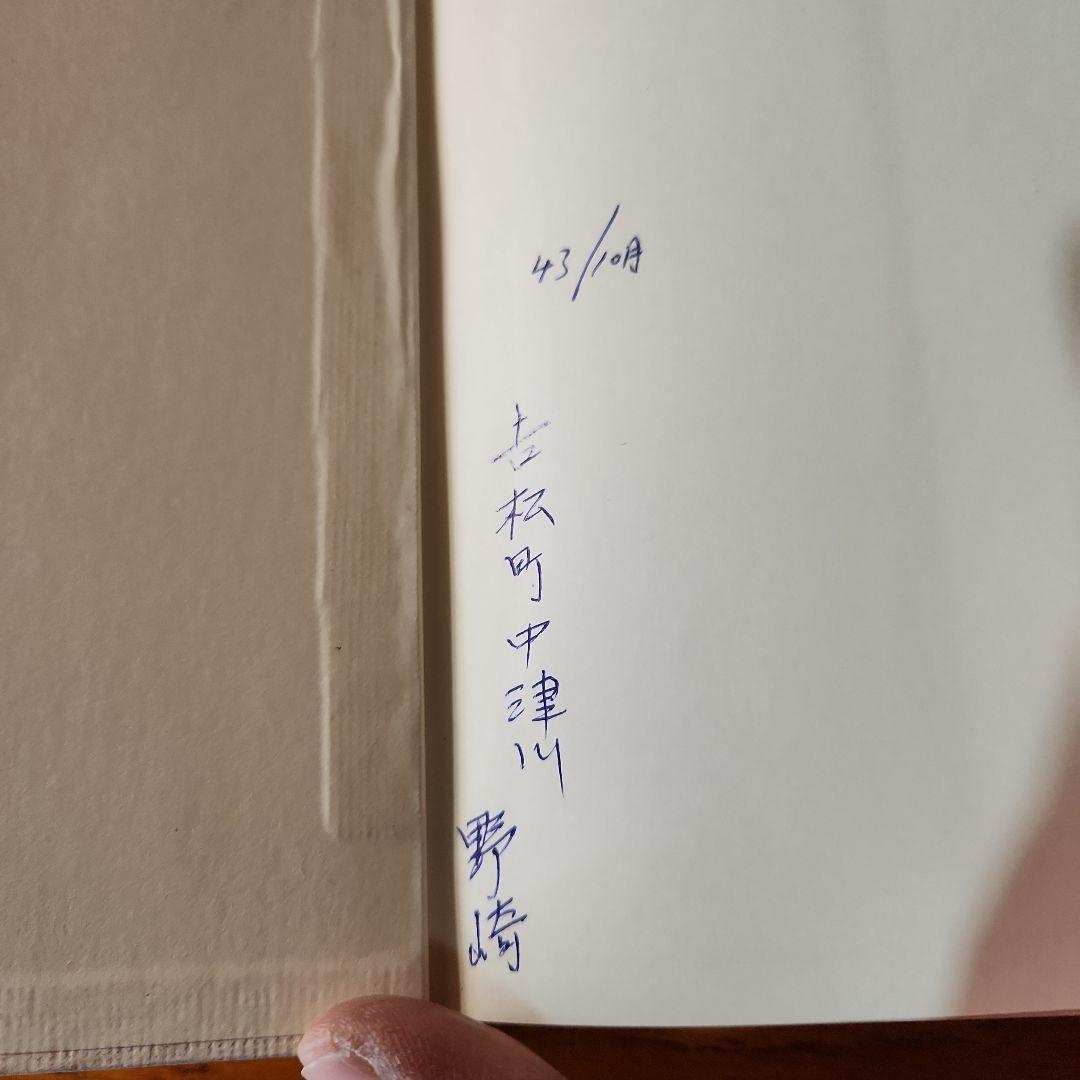 43/10月
吉松町中津川
野崎